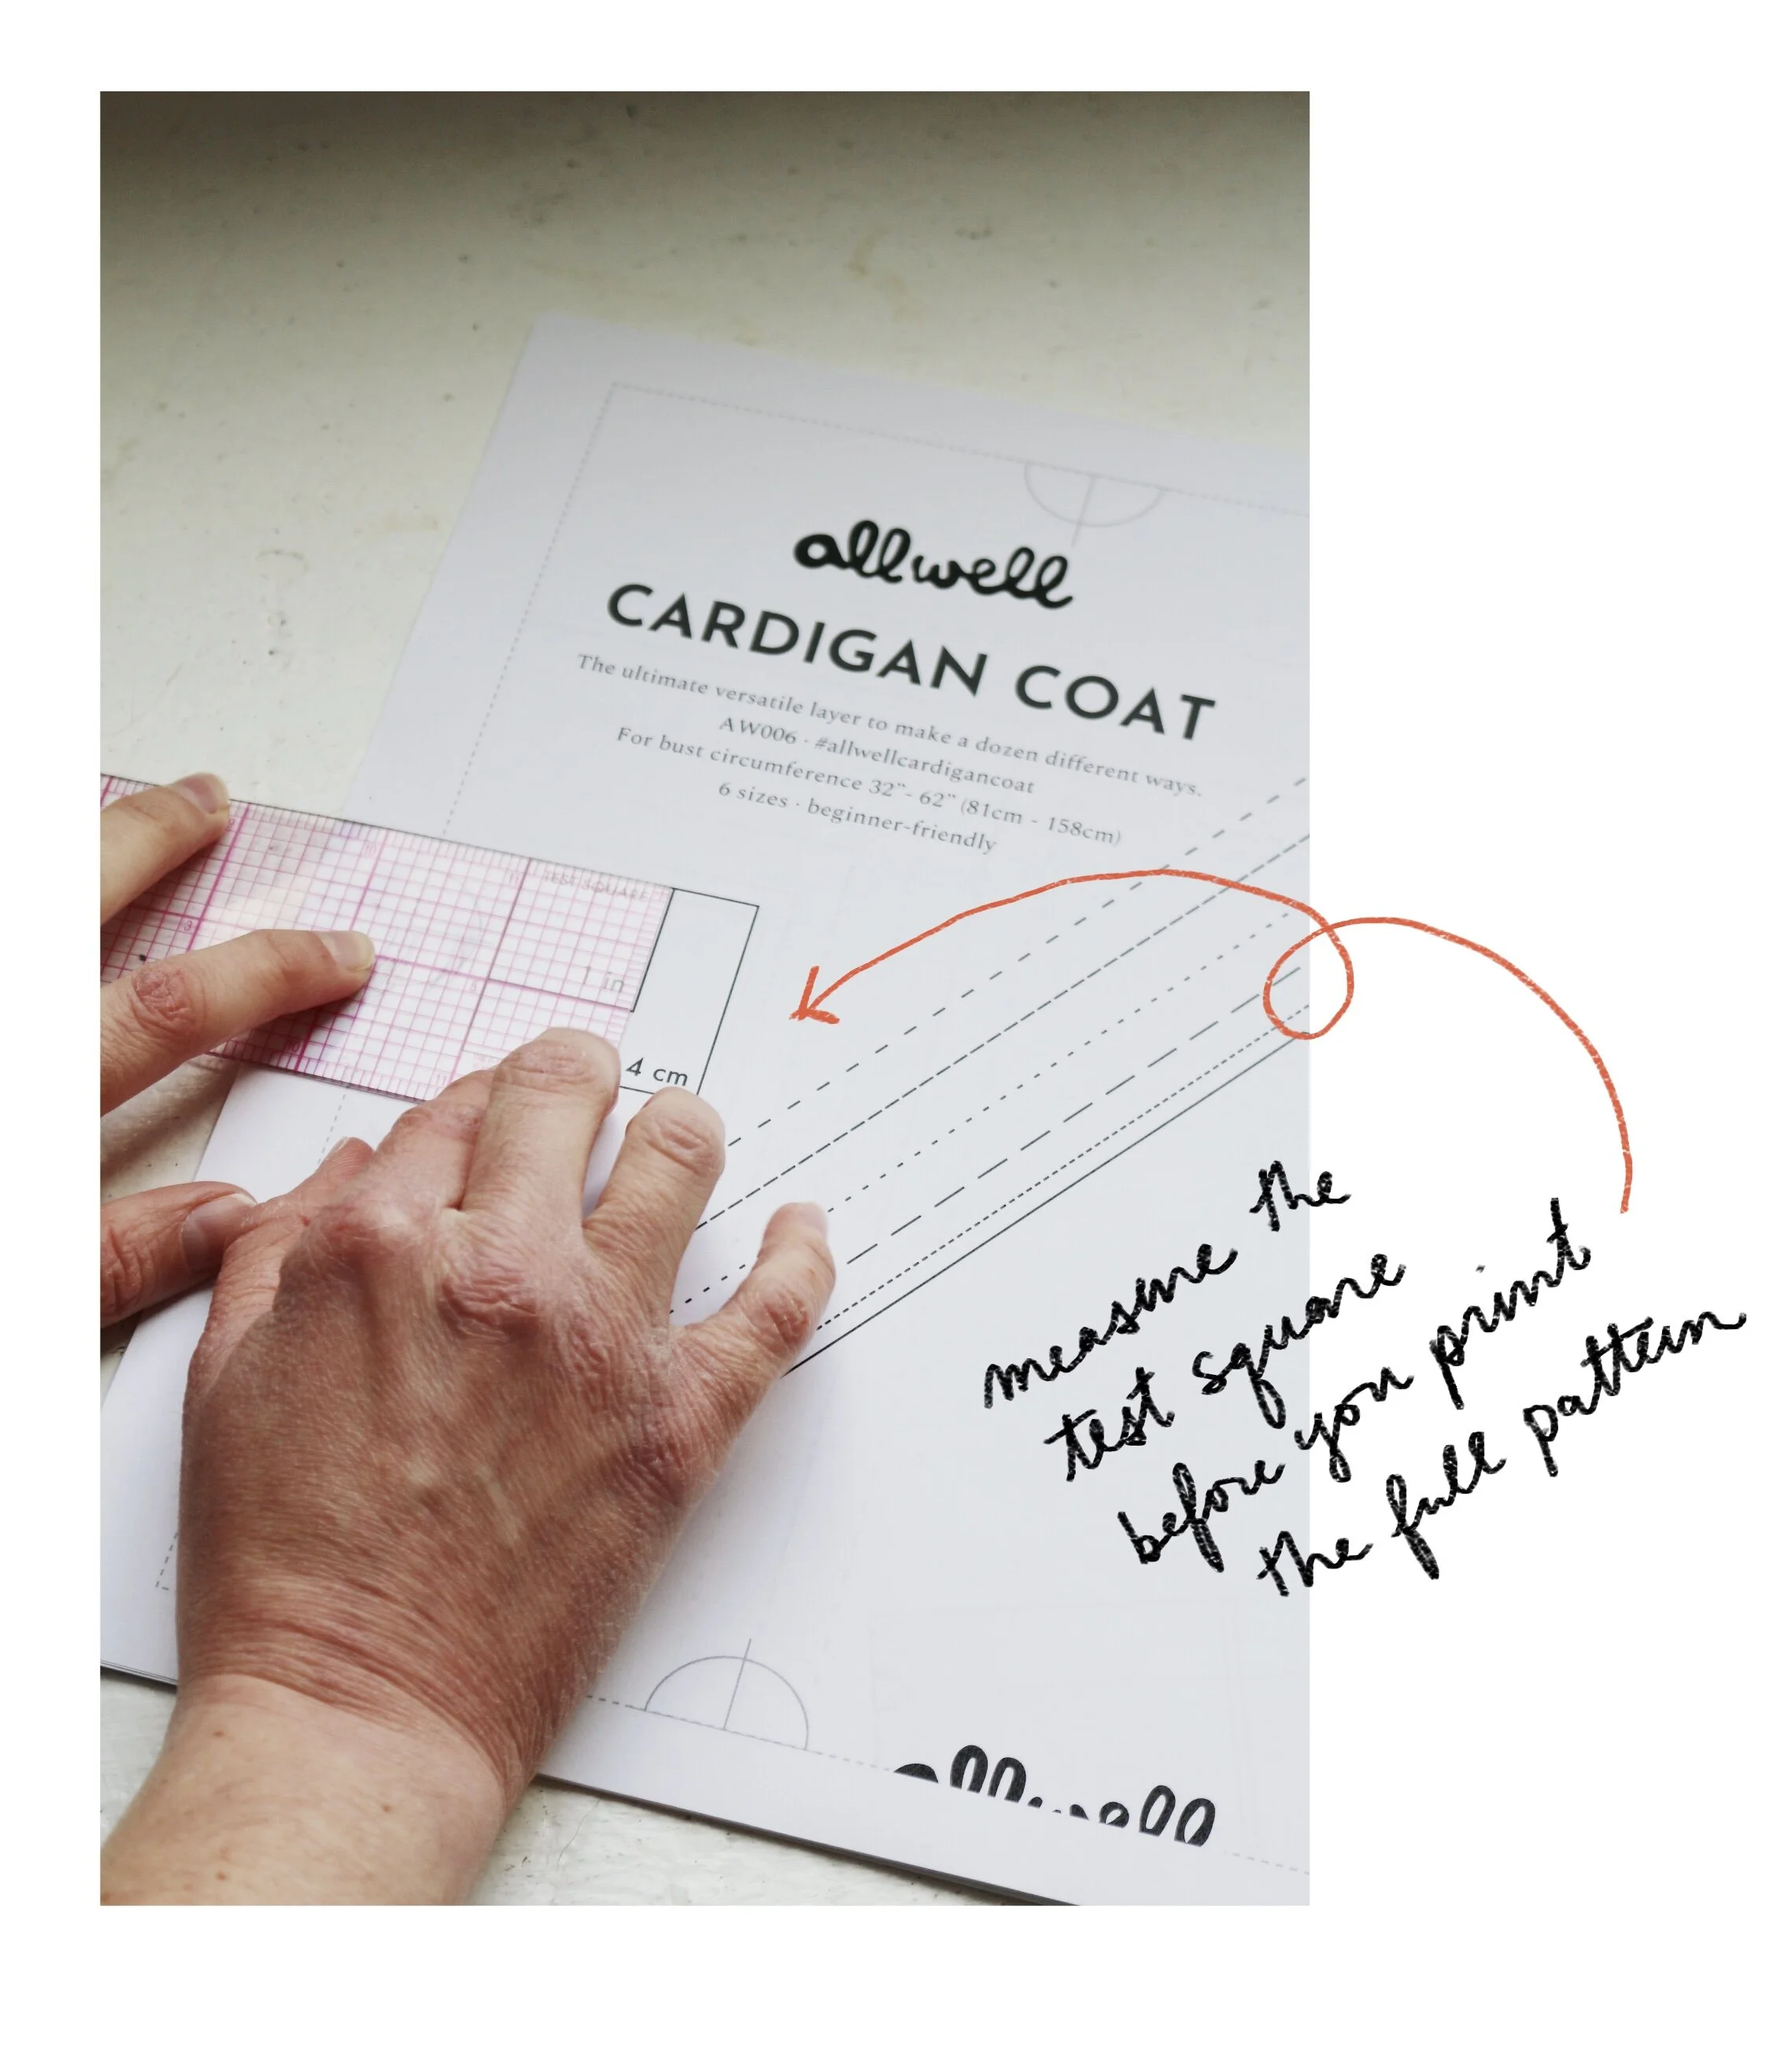 allwell
CARDIGAN COAT
The ultimate versatile layer to make a dozen different ways.
AW006 · #allwellcardigancoat
For bust circumference 32”- 62” (81cm - 158cm)
6 sizes · beginner-friendly
TEST SQUARE
1 in
4 cm
measure the
test square
before you print
the full pattern
allwell